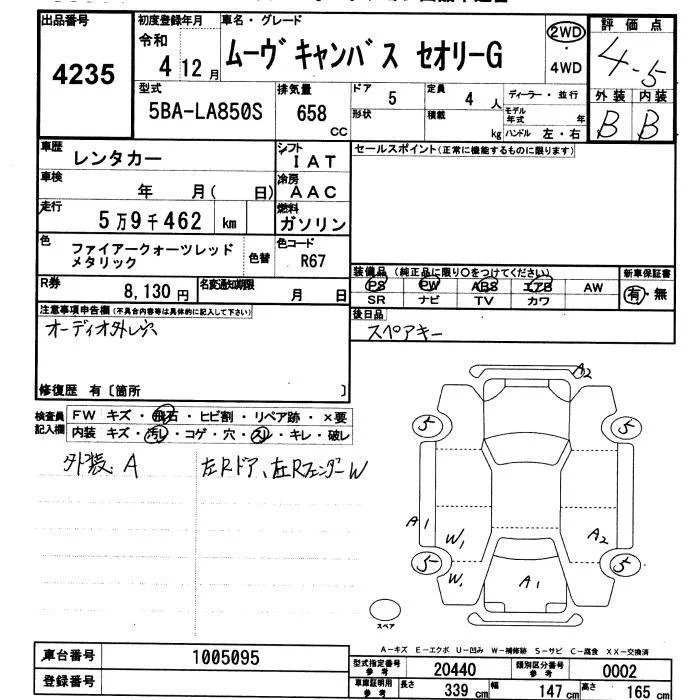 出品番号
4235
初度登録年月
令和
4 12月
車名・グレード
ムーヴキャンバス セオリーG
2WD
・
4WD
評価点
4.5
外装 内装
B B
型式
5BA-LA850S
排気量
658
CC
ドア
5
定員
4 人
ディーラー・並行
形状
積載
kg
モデル年式 年
ハンドル 左・右
車歴
レンタカー
シフト
IAT
セールスポイント(正常に機能するものに限ります)
車検
年 月( 日)
冷房
AAC
走行
5万9千462 km
燃料
ガソリン
色
ファイアークォーツレッド
メタリック
色替
色コード
R67
R券
8,130円
名変通知期限
月 日
装備品(純正品に限り○をつけてください)
PS PW ABS エアB AW
SR ナビ TV カワ
新車保証書
有・無
後日品
スペアキー
注意事項申告欄(不具合内容等は具体的に記入して下さい)
オーディオ外し穴
修復歴 有〔箇所 〕
検査員
記入欄
FW キズ・飛石・ヒビ割・リペア跡・×要
内装 キズ・汚レ・コゲ・穴・スレ・キレ・破レ
外装A 左Rドア、左Rフェンダー W
A2
5 5
A1
W1
A2
5 5
W1
A1
スペア
A-キズ E-エクボ U-凹み W-補修跡 S-サビ C-腐食 XX-交換済
車台番号
1005095
登録番号
型式指定番号
参考
20440
類別区分番号
参考
0002
車庫証明用
参考
長さ
339 cm
幅
147 cm
高さ
165 cm